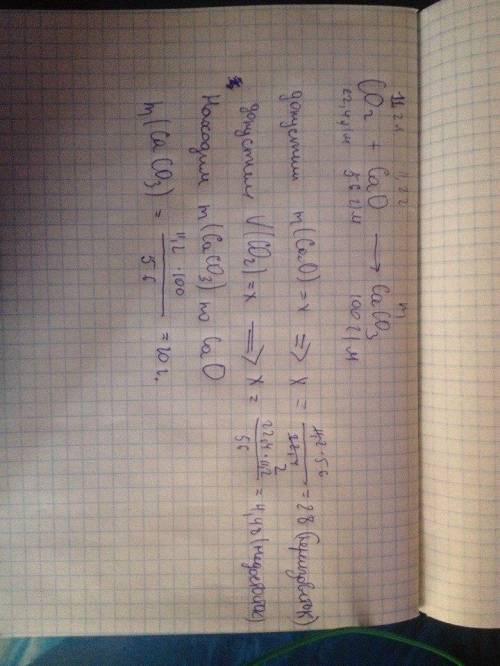 11,2 л 11,2 г m
CO₂ + CaO ⟶ CaCO₃
22,4 л/м 56 г/м 100 г/м
допустим m(CaO) = x ⇒ x = 11,2·56 / 22,4 = 28 
допустим V(CO₂) = x ⇒ x = 22,4·11,2 / 56 = 4,48 (недостаток)
Находим m(CaCO₃) по CaO
m(CaCO₃) = 11,2·100 / 56 = 20 г.